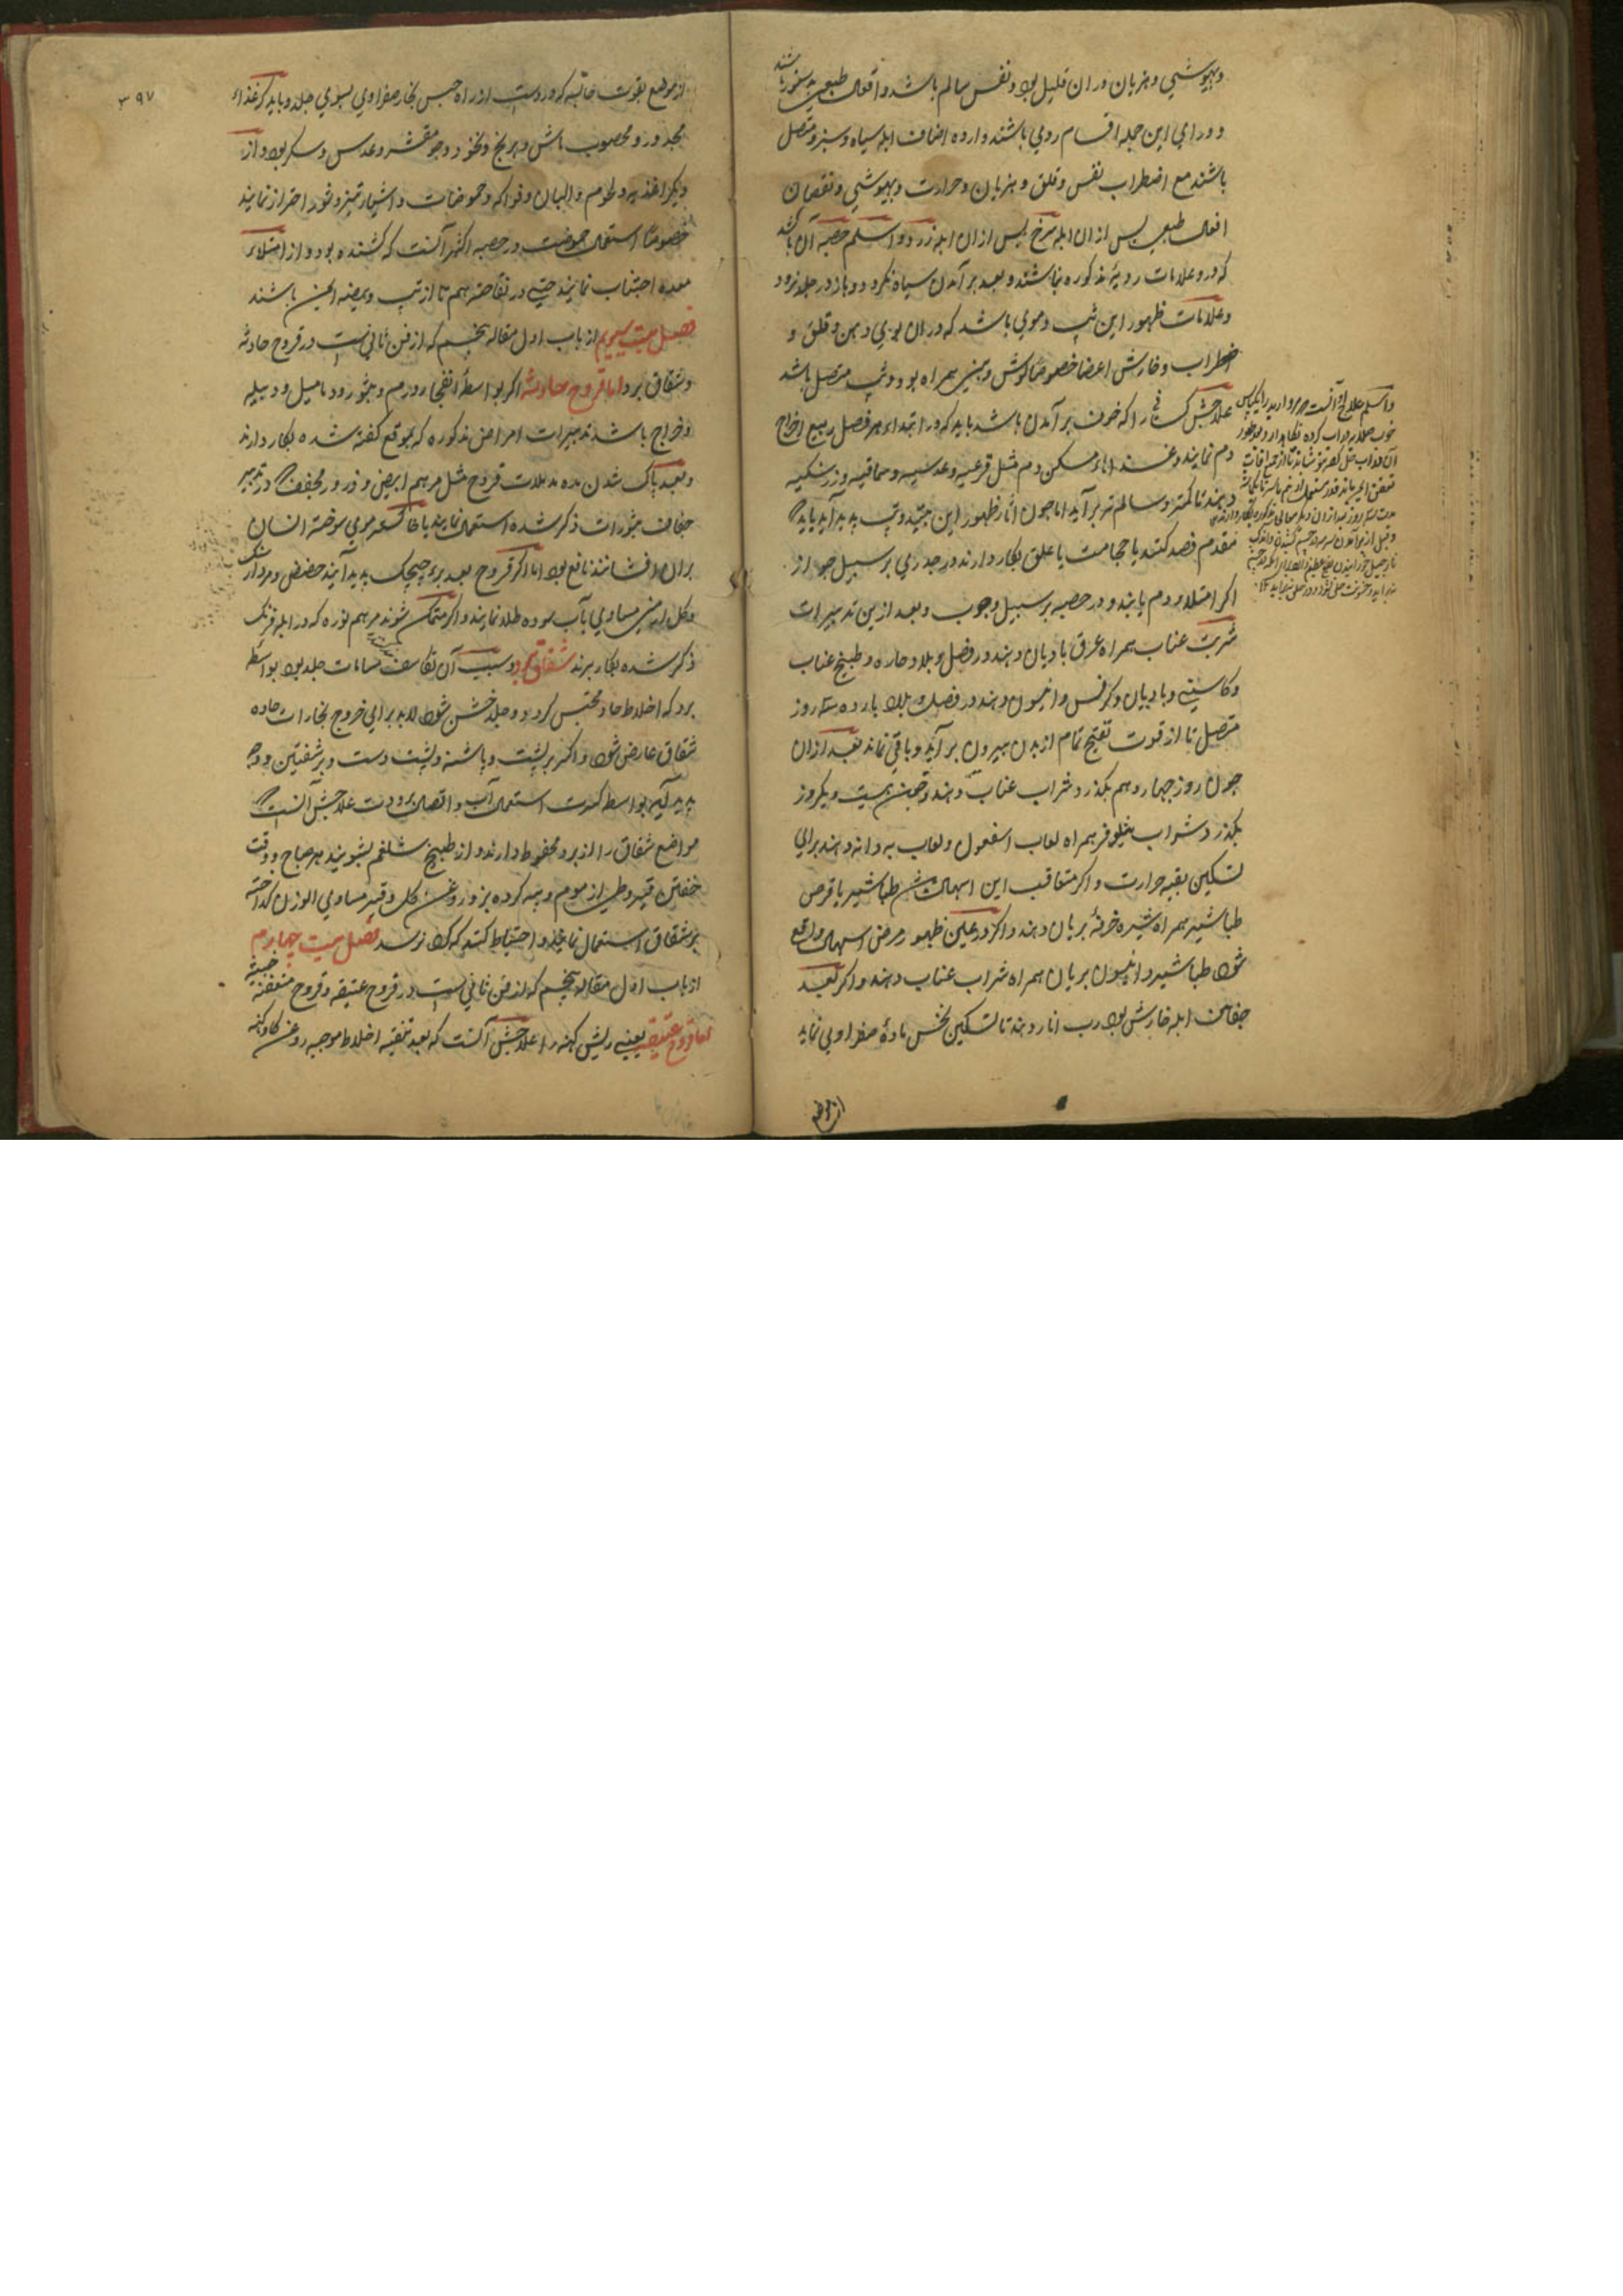 وبیهوشی وهذیان دران قلیل بود ونفس سالم باشد وافعال طبعی بدستور باشند
و ورای این جمله اقسام ردی باشند و اصناف ابله سیاه وسبز ومتصل
باشند مع اضطراب نفس وقلق وهذیان وحرارت وبیهوشی ونقصان
افعال طبعی پس ازان ابله سرخ پس ازان ابله زرد و اسلم حصبه آن باشد
که درو علامات ردیهٔ مذکوره نباشند وبعد برآمدن سیاه نگردد وباز در جلد نرود
وعلامات ظهور این تپ دموی باشد که دران بوی دهن وقلق و
اضطراب وخارش اعضا خصوصا گوش وبینی همراه بود وتپ متصل باشد
علاجش کسانی را که خوف برآمدن باشد باید که در ابتداء هر فصل ربیع اخراج
دم نمایند وغذاهاء مسکن دم مثل قرعیه وعدسیه وسماقیه وزرشکیه
دهند تا کمتر وسالم تر برآید اما چون آثار ظهور این بینند وتپ پدید آید باید که
مقدم فصد کنند یا حجامت یا علق بکار دارند در جدری بر سبیل جواز
اگر امتلاء دم یابند ودر حصبه بر سبیل وجوب وبعد ازین تدبیرات
شربت عناب همراه عرق بادیان دهند در فصل وبلاد حاره وطبیخ عناب
وکاسنی وبادیان وکرفس وانیسون دهند در فصل وبلاد بارده سه روز
متصل تا از قوت تفتیح تمام از بدن بیرون برآید وباقی نماند بعد ازان
چون روز چهاردهم بگذرد شراب عناب دهند وچون بیست ویکروز
بگذرد شراب نیلوفر همراه لعاب اسفغول ولعاب بهدانه دهند برای
تسکین بقیه حرارت و اگر متعاقب این اسهال شد طباشیر یا قرص
طباشیر همراه شیره خرفهٔ بریان دهند و اگر در عین ظهور مرض اسهال واقع
شود طباشیر وانیسون بریان همراه شراب عناب دهند و اگر بعد
جفاف ابله خارش بود رب انار دهند تا تسکین نخس مادهٔ صفراوی نماید
از موضع
واسلم علاج او آنست که مروارید را
۳۹۷
از موضع بقوت خاتمه که دروست از راه حبس بخار صفراوی بسوی جلد وباید که غذاء
مجدور ومحصوب ماش وبرنج ونخود وجو مقشر وعدس وسکر بود واز
دیگر اغذیه ولحوم والبان وفواکه وحموضات واشیاء تیز وشور احتراز نمایند
خصوصا استعمال حموضت در حصبه اکثر آنست که کشنده بود و از امتلاء
معده اجتناب نمایند حتی در نقاهت هم تا از تپ وبیضه ایمن باشند
فصل بیست سیوم از باب اول مقاله پنجم که از فن ثانی است در قروح حادثه
وشقاق برد اما قروح حادثه اگر بواسطهٔ انفجار ورم وبثور ودمامیل ودبیله
وخراج باشد تدبیرات امراض مذکوره که بموقع گفته شده بکار دارند
وبعد پاک شدن مده مدملات قروح مثل مرهم ابیض وذرور مجفف که در تدبیر
جفاف بثورات ذکر شده استعمال نمایند یا خاکستر موی سوخته انسان
بران افشانند نافع بود اما اگر قروح بعد برء چیچک پدید آیند حضض ومردارسنگ
وگل ارمنی مساوی بآب سوده طلا نمایند و اگر متمکن شوند مرهم نوره که در ابله فرنگ
ذکر شده بکار برند شقاق برد وسبب آن تکاثف مسامات جلد بود بواسطه
برد که اخلاط حاد محتبس گردد وجلد خشن شود لابد برای خروج بخارات حاده
شقاق عارض شود و اکثر بر پشت وپاشنه وپشت دست وبر شفتین ووجه
پدید آید بواسطه کثرت استعمال آب واتصال برودت علاجش آنست که
مواضع شقاق را از برد محفوظ دارند و از طبیخ شلغم بشویند هر صباح ووقت
خفتن قیروطی از موم وپیه گرده بز وروغن گل وقیر مساوی الوزن گداخته
بر شقاق استعمال نمایند و احتیاط کنند که گرد نرسد فصل بیست چهارم
از باب اول مقاله پنجم که از فن ثانی است در قروح عتیقه وقروح متعفنه خبیثه
اما قروح عتیقه یعنی ریش کهنه را علاجش آنست که بعد تنقیه اخلاط موجبه روغن گاو کهنه